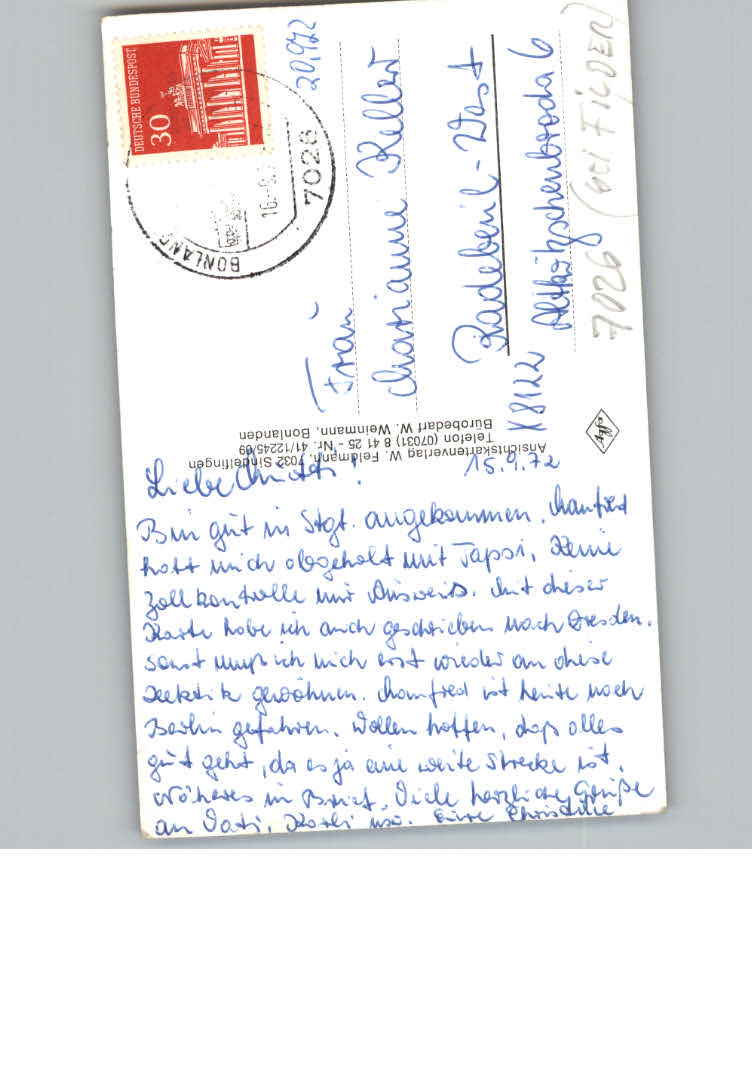 DEUTSCHE BUNDESPOST
30
BONLANDEN
16.-9.
7026
20,9,72
Frau
Marianne Keller
Radebeul-West
X 8122 Altkötzschenbroda 6
7026 (bei FILDERN)
Ansichtskartenverlag W. Feldmann, 7032 Sindelfingen
Telefon (07031) 8 41 25 - Nr. 41/12245/69
Bürobedarf W. Weinmann, Bonlanden
Agfa
15.9.72
Liebe Mutti!
Bin gut in Stgt. angekommen. Manfred
hatt mich abgeholt mit Tapsi. Keine
Zollkontrolle nur Ausweis. Mit dieser
Karte habe ich auch geschrieben nach Dresden.
Sonst muß ich mich erst wieder an diese
Hektik gewöhnen. Manfred ist heute nach
Berlin gefahren. Wollen hoffen, daß alles
gut geht, da es ja eine weite Strecke ist.
Näheres im Brief. Viele herzliche Grüße
an Vati, Karli usw. Eure Christine